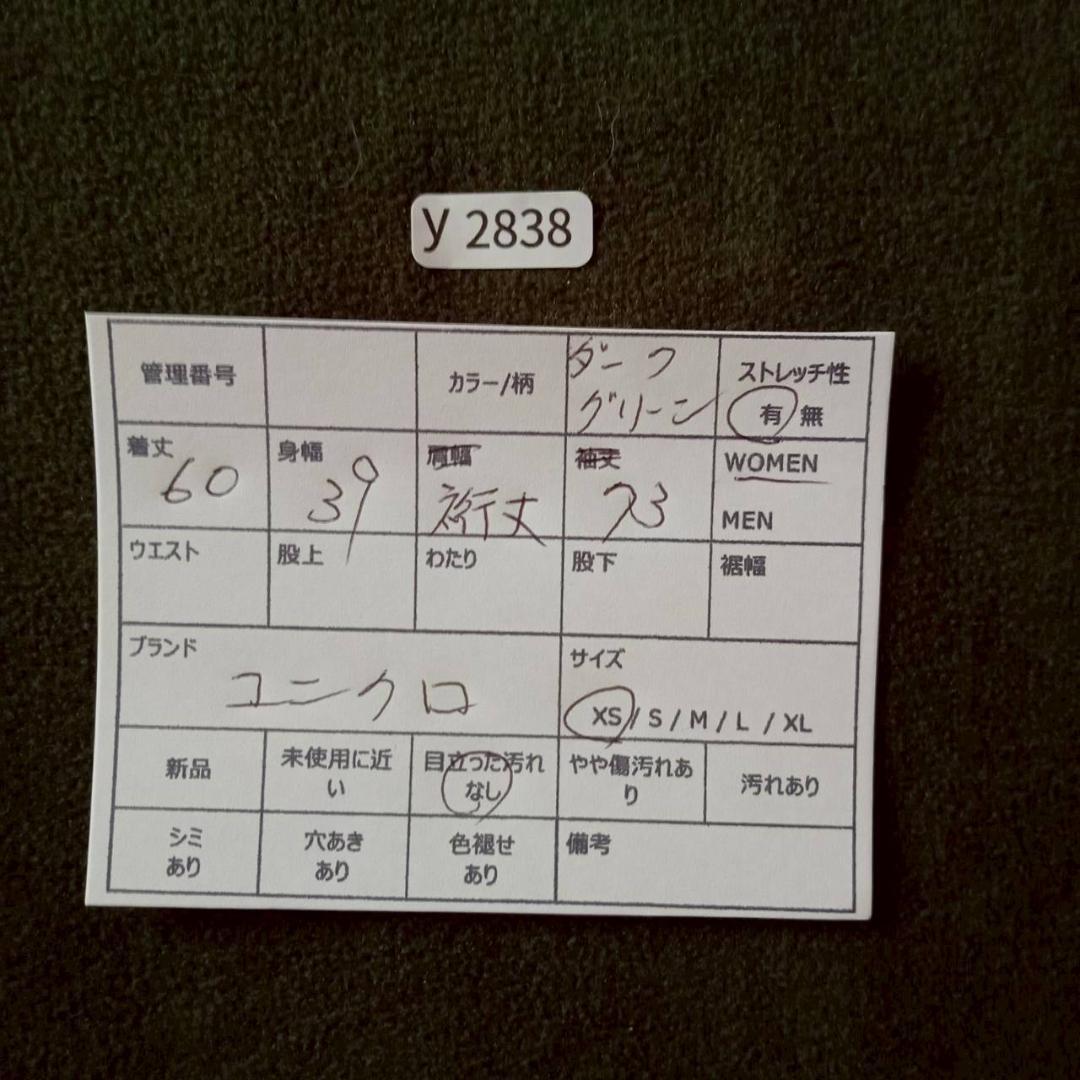 y 2838
管理番号
カラー/柄
ダーク
グリーン
ストレッチ性
有 無
着丈
60
身幅
39
肩幅
裄丈
袖丈
73
WOMEN
MEN
ウエスト
股上
わたり
股下
裾幅
ブランド
ユニクロ
サイズ
XS / S / M / L / XL
新品
未使用に近
い
目立った汚れ
なし
やや傷汚れあ
り
汚れあり
シミ
あり
穴あき
あり
色褪せ
あり
備考